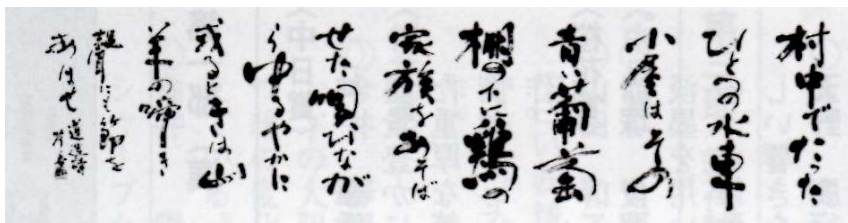 村中でたた
ひとつの水車
小屋はその
青い葡萄
棚の下に鶏の
家族をあそば
せた唄ひなが
らゆるやかに
或るときは山
羊の啼き
聲にも節を
あはせ